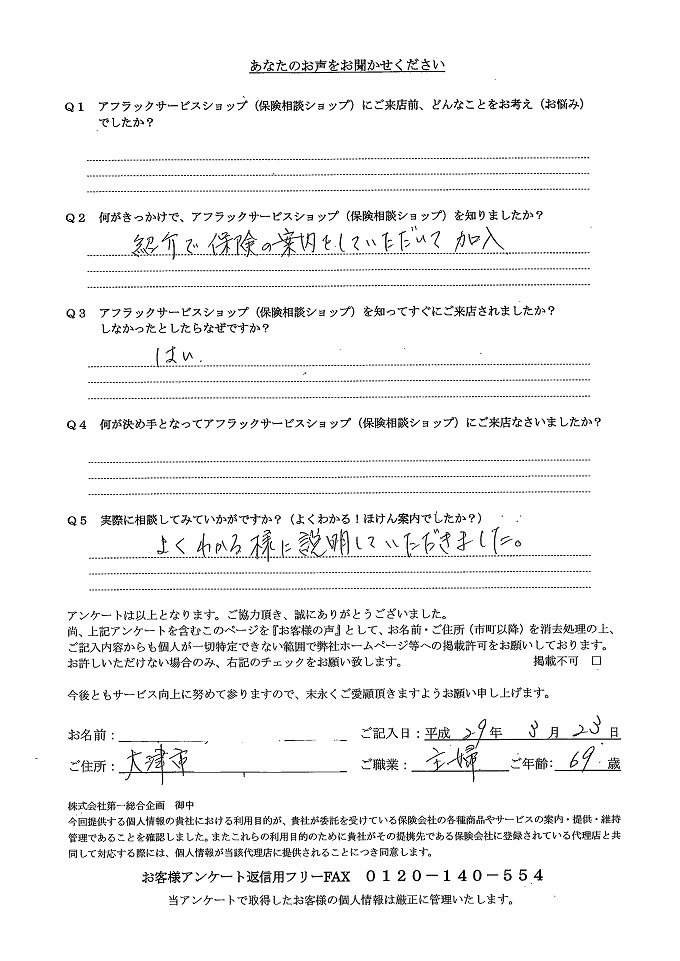 あなたのお声をお聞かせください
Q1 アフラックサービスショップ（保険相談ショップ）にご来店前、どんなことをお考え（お悩み）
でしたか？
Q2 何がきっかけで、アフラックサービスショップ（保険相談ショップ）を知りましたか？
紹介で保険の案内をしていただいて加入
Q3 アフラックサービスショップ（保険相談ショップ）を知ってすぐにご来店されましたか？
しなかったとしたらなぜですか？
はい.
Q4 何が決め手となってアフラックサービスショップ（保険相談ショップ）にご来店なさいましたか？
Q5 実際に相談してみていかがですか？（よくわかる！ほけん案内でしたか？）
よくわかる様に説明していただきました。
アンケートは以上となります。ご協力頂き、誠にありがとうございました。
尚、上記アンケートを含むこのページを『お客様の声』として、お名前・ご住所（市町以降）を消去処理の上、
ご記入内容からも個人が一切特定できない範囲で弊社ホームページ等への掲載許可をお願いしております。
お許しいただけない場合のみ、右記のチェックをお願い致します。 掲載不可 □
今後ともサービス向上に努めて参りますので、末永くご愛顧頂きますようお願い申し上げます。
お名前： ご記入日：平成 29年 3月 23日
ご住所：大津市 ご職業：主婦 ご年齢：69歳
株式会社第一総合企画 御中
今回提供する個人情報の貴社における利用目的が、貴社が委託を受けている保険会社の各種商品やサービスの案内・提供・維持
管理であることを確認しました。またこれらの利用目的のために貴社がその提携先である保険会社に登録されている代理店と共
同して対応する際には、個人情報が当該代理店に提供されることにつき同意します。
お客様アンケート返信用フリーFAX 0120－140－554
当アンケートで取得したお客様の個人情報は厳正に管理いたします。